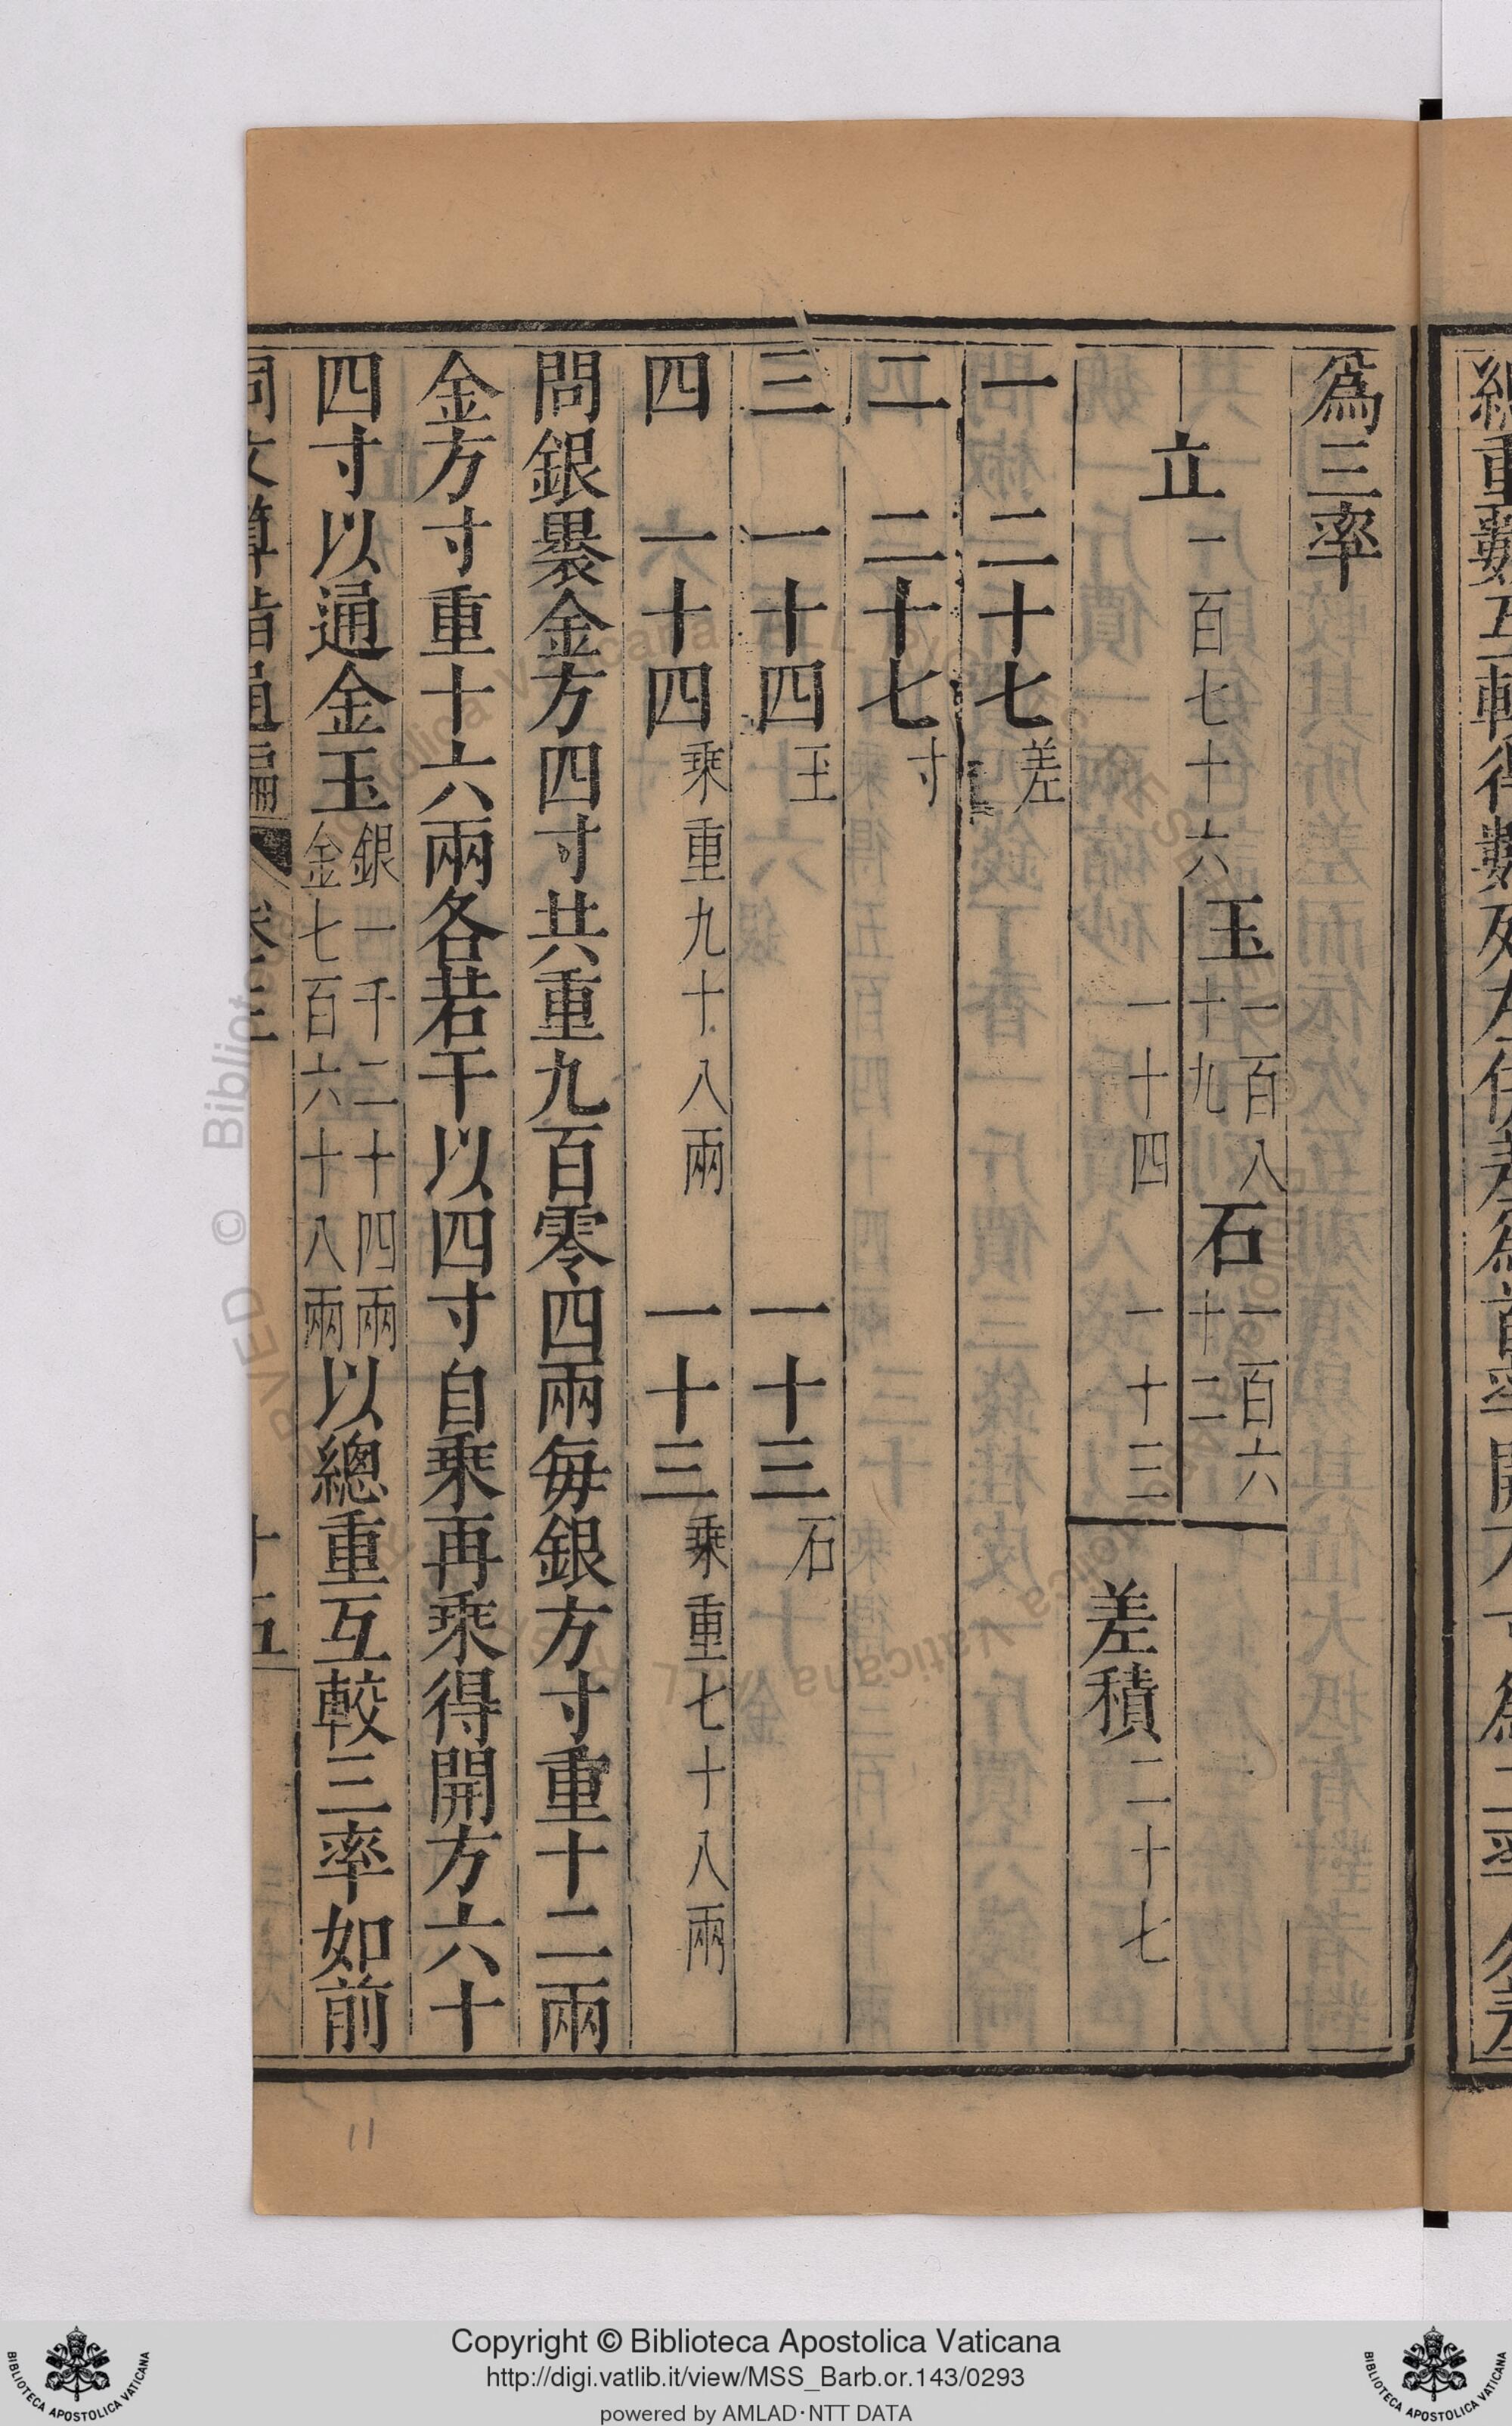 爲三率
立 一百七十六
玉 一百八十九
一十四
石 一百六十二
一十三
差積 二十七
一 二十七 差
二 二十七 寸
三 一十四 玉 一十三 石
四 一十四 乘重九十八兩 一十三 乘重七十八兩
問銀褁金方四寸共重九百零四兩每銀方寸重十二兩
金方寸重十六兩各若干以四寸自乘再乘得開方六十
四寸以通金玉 銀一千二十四兩 金七百六十八兩 以總重互較三率如前
同文算指通編 卷二 十五
11
Copyright © Biblioteca Apostolica Vaticana
http://digi.vatlib.it/view/MSS_Barb.or.143/0293
powered by AMLAD·NTT DATA
BIBLIOTECA APOSTOLICA VATICANA
BIBLIOTECA APOSTOLICA VATICANA